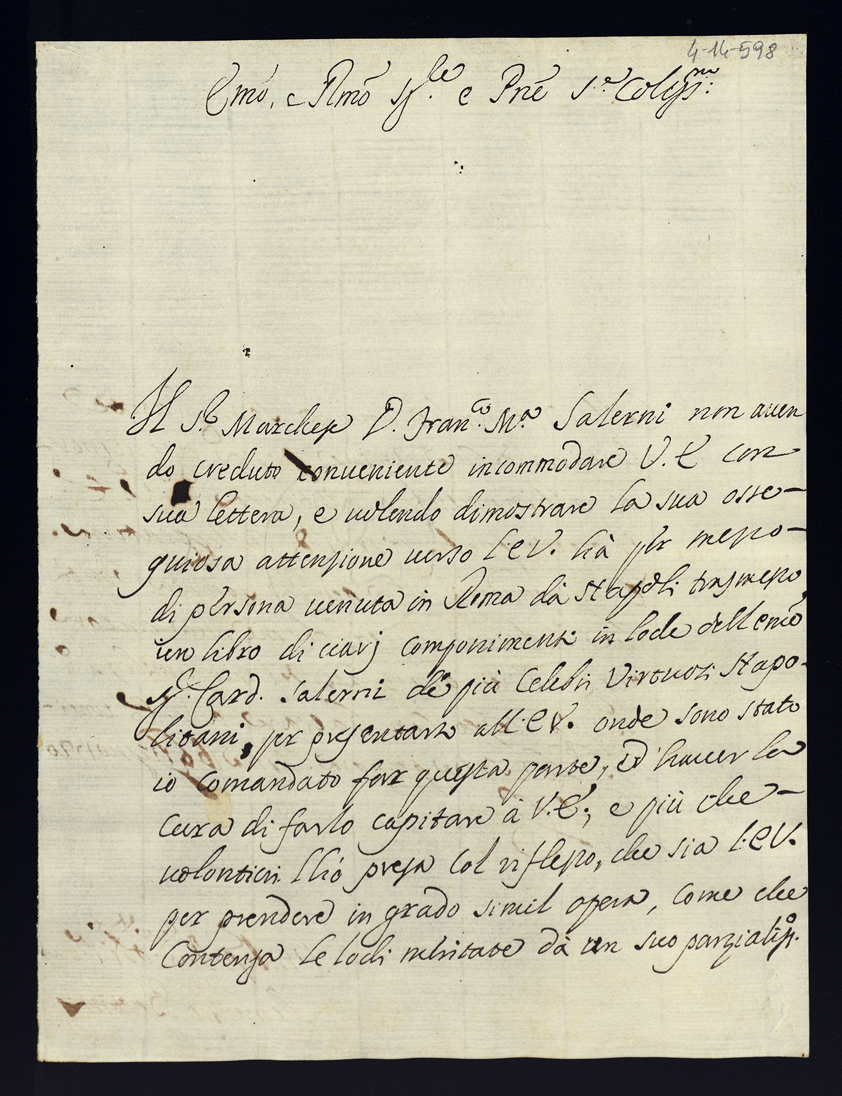 4-14-598
Emō, e Rmō Sig.re e Pnē S.re Colmo:
Il S.r Marchese D. Fran.co M.a Salerni non auen
do creduto conueniente incommodare V.E. con
sua lettera, e uolendo dimostrare la sua osse-
quiosa attenzione uerso l'E.V. hà per mezzo-
di persona uenuta in Roma dà Napoli trasmesso
un libro di uarj componimenti in lode dell'emō
Sig.r Card. Salerni de' più Celebri Virtuosi Napo-
litani, per presentarlo all'E.V. onde sono stato
io comandato far questa parte, ed hauer la
cura di farlo capitare à V.E.; e più che-
uolontieri l'hò presa col riflesso, che sia l'E.V.
per prendere in grado simil opera, come che
Contenga le lodi meritate dà un suo parzialiss.o